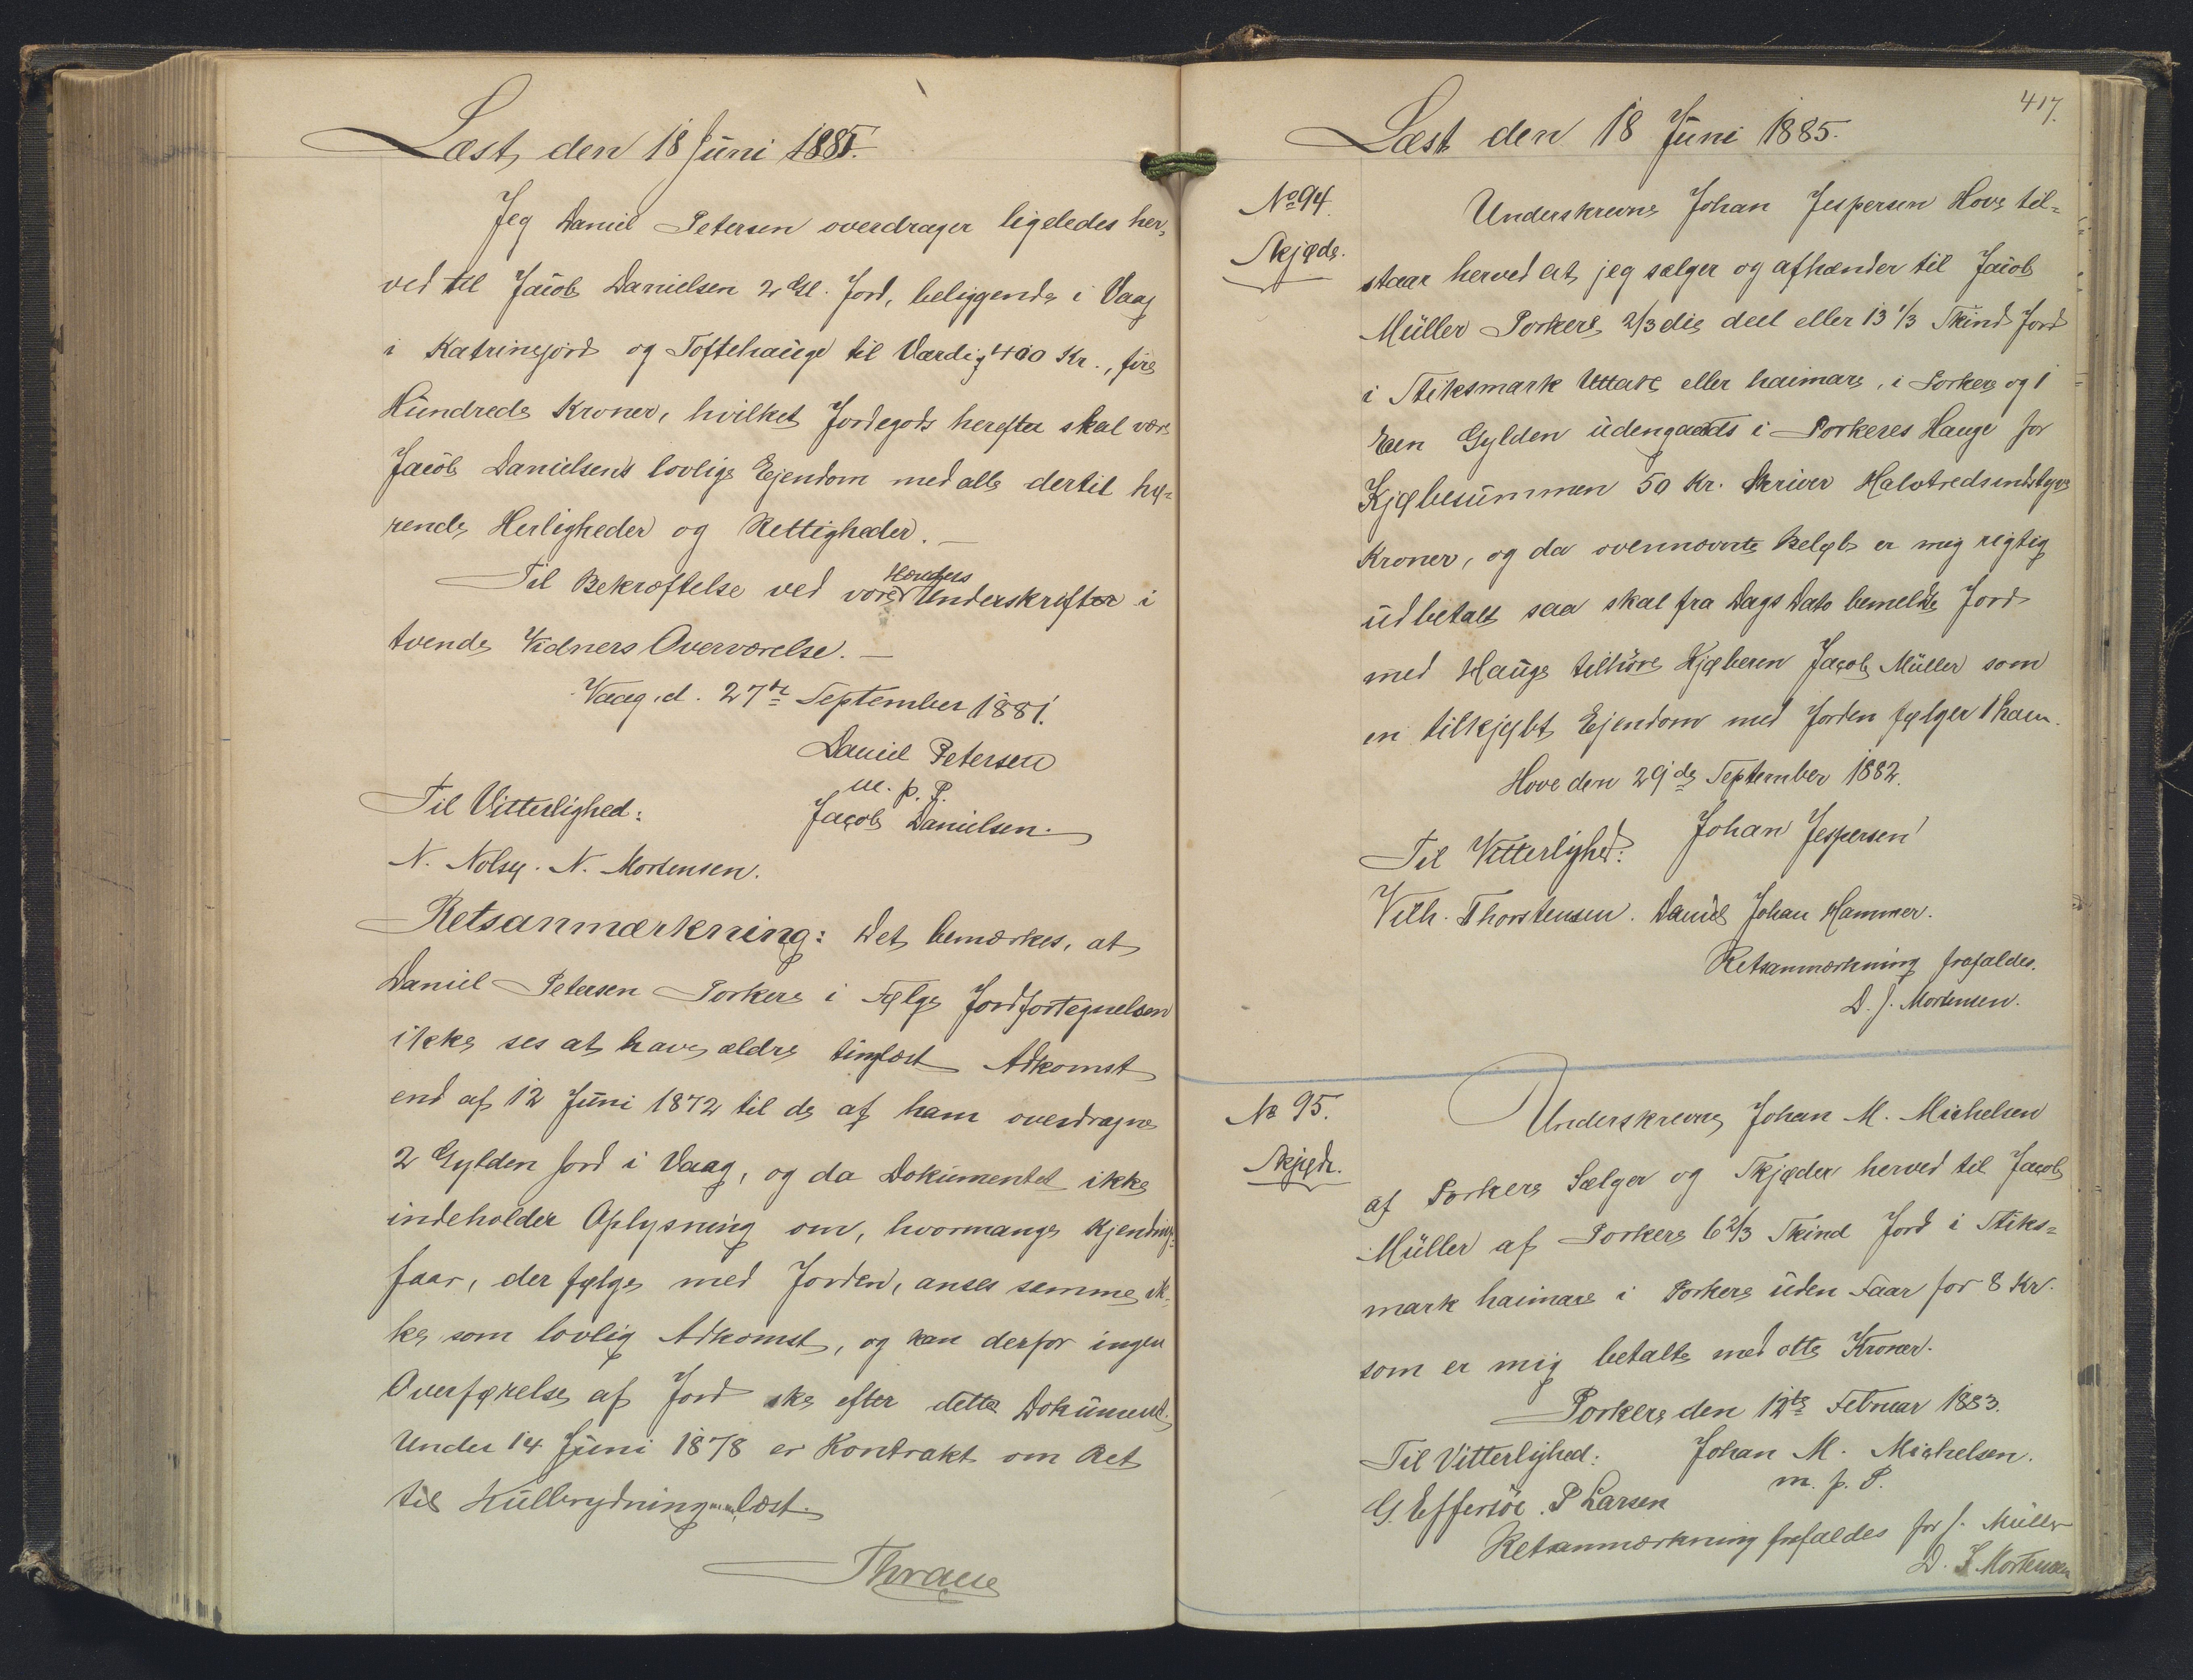 Læst, den 18 Juni 1885.
Jeg Daniel Petersen overdrager ligeledes her-
ved til Jacob Danielsen 2 Gl. Jord, beliggende i Vaag
i Katrinsjord og Toftehauge til Værdig 400 Kr., fire
Hundrede Kroner, hvilket Jordegods herefter skal være
Jacob Danielsens lovlige Ejendom med alle dertil hø-
rende Herligheder og Rettigheder. —
Til Bekræftelse ved vore Hænders Underskrifter i
tvende Vidners Overværelse. —
Vaag, d. 27de September 1881.
Daniel Petersen
m. p. P.
Til Vitterlighed: Jacob Danielsen.
N. Nolsø. N. Mortensen.
Retsanmærkning: Det bemærkes, at
Daniel Petersen Porkere i Følge Jordfortegnelsen
ikke ses at have ældre tinglæst Adkomst
end af 12 Juni 1872 til de af ham overdragne
2 Gylden Jord i Vaag, og da Dokumentet ikke
indeholder Oplysning om, hvormange Kjendings-
faar, der følge med Jorden, anses samme ik-
ke som lovlig Adkomst, og kan derfor ingen
Overførelse af Jord ske efter dette Dokument.
Under 14 Juni 1878 er Kontrakt om Ret
til Kulbrydning læst.
Thrane
417.
Læst den 18 Juni 1885.
No 94.
Skjøde.
Underskrevne Johan Jespersen Hove til-
staar herved at jeg sælger og afhænder til Jacob
Müller Porkere 2/3 die deel eller 13 1/3 Skind Jord
i Stiksmark eller haimare, i Porkere og 1
Een Gylden udengaards i Porkeres Hauge for
Kjøbesummen 50 Kr. skriver Halvtredsindstyve
Kroner, og da ovennævnte Beløb er mig rigtig
udbetalt saa skal fra Dags Dato bemeldte Jord
med Hauge tilhøre Kjøberen Jacob Müller som
en tilkjøbt Ejendom med Jorden følger 1 ham.
Hove den 29de September 1882.
Til Vitterlighed: Johan Jespersen
Vilh. Thorstensen. Daniel Johan Hammer.
Retsanmærkning frafaldes.
D. J. Mortensen.
No 95.
Skjøde.
Underskrevne Johan M. Michelsen
af Porkere Sælger og Skjøder herved til Jacob
Müller af Porkere 6 2/3 Skind Jord i Stiks-
mark haimare i Porkere uden Faar for 8 Kr.
som er mig betalte med otte Kroner.
Porkere den 12te Februar 1883.
Til Vitterlighed: Johan M. Michelsen.
m. p. P.
G. Effersøe. P Larsen
Retsanmærkning frafaldes for J. Müller
D. J. Mortensen